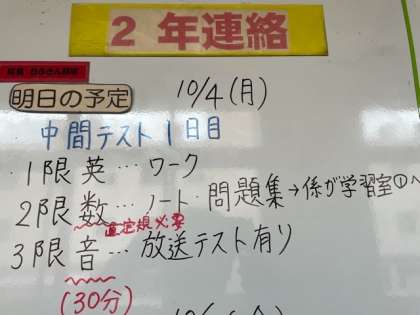 2年連絡
明日の予定
10/4(月)
中間テスト1日目
1限英…ワーク
2限数…ノート・問題集→係が学習室①へ
定規必要
3限音…放送テスト有り
(30分)